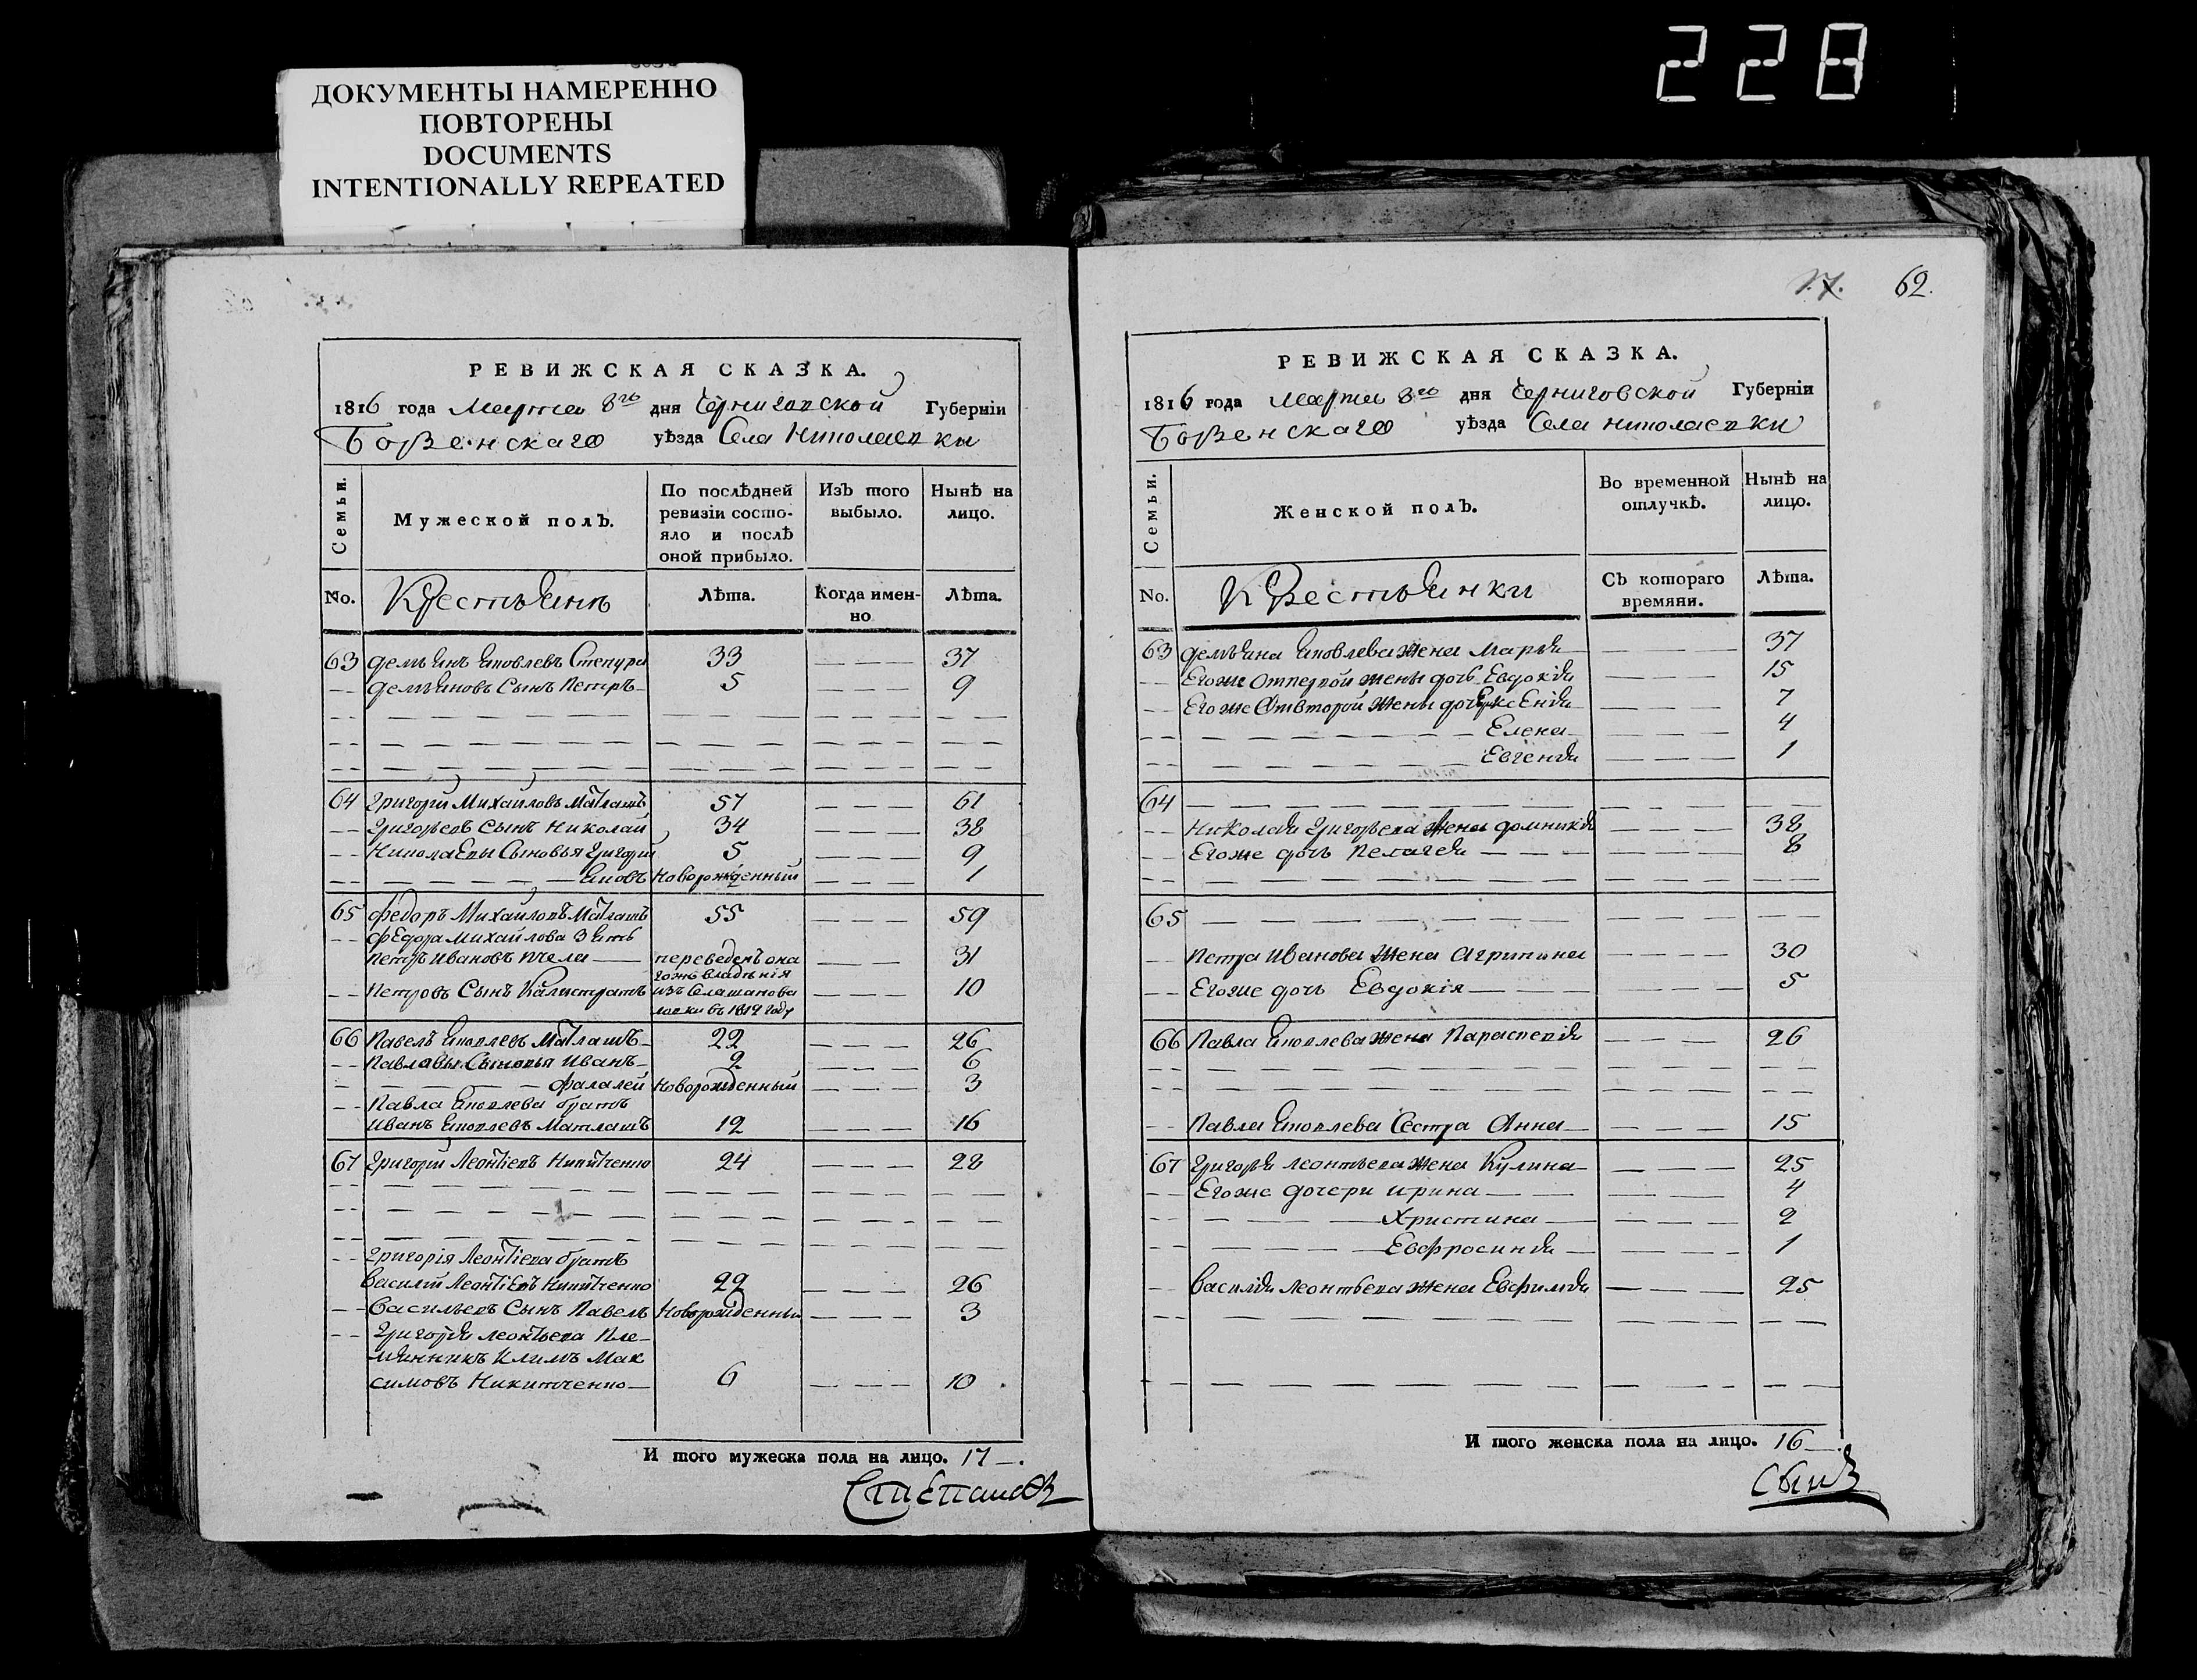 228
ДОКУМЕНТЫ НАМЕРЕННО
ПОВТОРЕНЫ
DOCUMENTS
INTENTIONALLY REPEATED
РЕВИЖСКАЯ СКАЗКА.
1816 года Марта 8го дня Черниговской Губерніи
Борзенскаго уѣзда Села Николаевки
Семьи. Мужеской полъ. По послѣдней ревизіи состояло и послѣ оной прибыло. Изъ того выбыло. Нынѣ на лицо.
No. Крестьянъ Лѣта. Когда именно Лѣта.
63 Демьянъ Яковлевъ Степура 33 — — — 37
Демьяновъ Сынъ Петръ 5 — — — 9
64 Григорій Михайловъ Матлашъ 57 — — — 61
Григорьевъ Сынъ Николай 34 — — — 38
Николаевы Сыновья Григорій 5 — — — 9
Яковъ Новорожденный — — — 1
65 Федоръ Михайловъ Матлашъ 55 — — — 59
Федора Михайлова Зять
Петръ Ивановъ Пчела переведенъ она — — — 31
гожъ владѣнія
Петровъ Сынъ Калистратъ изъ Села — — — 10
въ 1812 году
66 Павелъ Яковлевъ Матлашъ 22 — — — 26
Павловы Сыновья Иванъ 2 — — — 6
Фалалей Новорожденный — — — 3
Павла Яковлева братъ
Иванъ Яковлевъ Матлашъ 12 — — — 16
67 Григорій Леонтіевъ Никитченко 24 — — — 28
Григорія Леонтіева братъ
Василій Леонтіевъ Никитченко 22 — — — 26
Васильевъ Сынъ Павелъ Новорожденный — — — 3
Григорія Леонтьева Пле-
мянникъ Климъ Мак
симовъ Никитченко 6 — — — 10
И того мужеска пола на лицо. 17
Степанов
62.
РЕВИЖСКАЯ СКАЗКА.
1816 года Марта 8го дня Черниговской Губерніи
Борзенскаго уѣзда Села Николаевки
Семьи. Женской полъ. Во временной отлучкѣ. Нынѣ на лицо.
No. Крестьянки Съ котораго времяни. Лѣта.
63 Демьяна Яковлева жена Марья — — — 37
Егоже Отпервой жены дочь Евдокія — — — 15
Егоже Отвторой жены дочь — — — 7
Елена — — — 4
Евгенія — — — 1
64
Николая Григорьева жена Домникія — — — 38
Егоже дочь Пелагея — — — 8
65
Петра Иванова жена Агрипина — — — 30
Егоже дочь Евдокія — — — 5
66 Павла Яковлева жена Параскевія — — — 26
Павла Яковлева Сестра Анна — — — 15
67 Григорія Леонтьева жена Кулина — — — 25
Егоже дочери Ирина — — — 4
Христина — — — 2
Евфросинія — — — 1
Василія Леонтьева жена Евфимія — — — 25
И того женска пола на лицо. 16
сынъ